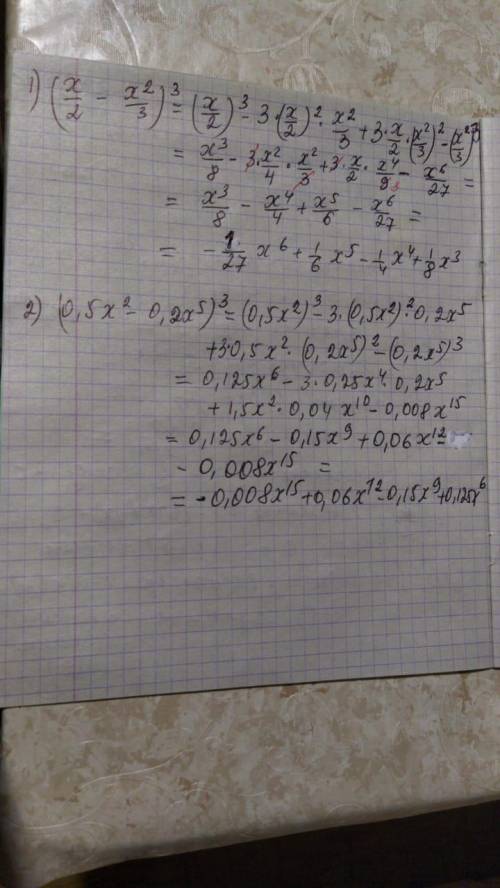 1) (x/2 - x²/3)³ = (x/2)³ - 3·(x/2)²·x²/3 + 3·x/2·(x²/3)² - (x²/3)³
= x³/8 - 3·x²/4·x²/3 + 3·x/2·x⁴/9 - x⁶/27 =
= x³/8 - x⁴/4 + x⁵/6 - x⁶/27 =
= - 1/27 x⁶ + 1/6 x⁵ - 1/4 x⁴ + 1/8 x³
2) (0,5x² - 0,2x⁵)³ = (0,5x²)³ - 3·(0,5x²)²·0,2x⁵
+3·0,5x²·(0,2x⁵)² - (0,2x⁵)³
= 0,125x⁶ - 3·0,25x⁴·0,2x⁵
+ 1,5x²·0,04x¹⁰ - 0,008x¹⁵
= 0,125x⁶ - 0,15x⁹ + 0,06x¹² -
- 0,008x¹⁵ =
= -0,008x¹⁵ + 0,06x¹² - 0,15x⁹ + 0,125x⁶